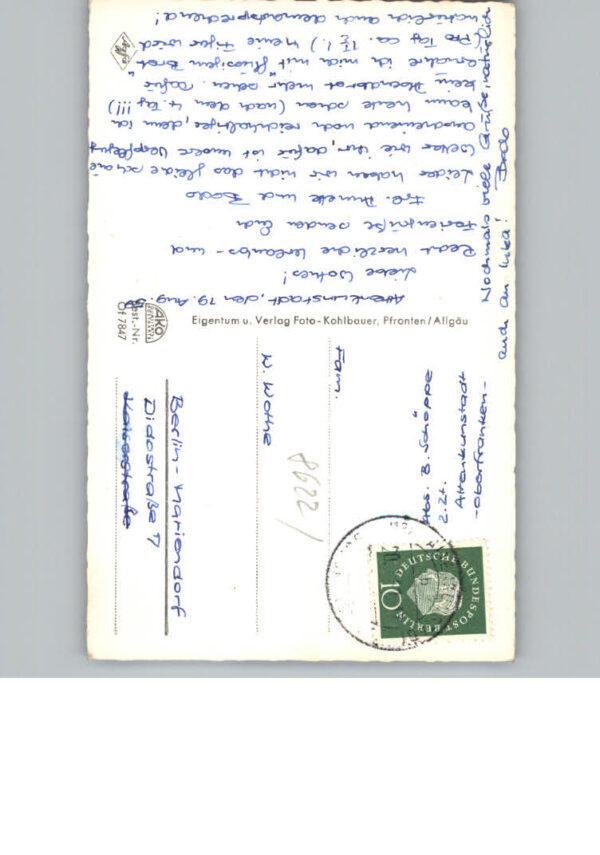 Altenkunstadt, den 19. Aug. 59
Liebe Wothes!
Recht herzliche Urlaubs- und
Feriengrüße senden Euch
Frl. Annette und Bodo
Leider haben wir nicht das gleiche schöne
Wetter wie ihr, dafür ist unsere Verpflegung
anscheinend noch reichhaltiger, denn ich
kann heute schon (nach dem 4. Tag !!!)
kein Abendbrot mehr sehen. Dafür
ernähre ich mich mit "flüssigem Brot"
(Pro Tag ca. 1½ l.) Meine Figur wird
natürlich auch dementsprechend!
Nochmals viele Grüße, natürlich
auch an Inka! Bodo
Agfa
Eigentum u. Verlag Foto-Kohlbauer, Pfronten/Allgäu
AKO
Best.-Nr.
Of 7847
Abs. B. Schöppe
z. Zt. Altenkunstadt
-Oberfranken-
Fam.
W. Wothe
Berlin-Mariendorf
Didostraße 17
Kaiserstraße
8622/
10
DEUTSCHE BUNDESPOST BERLIN